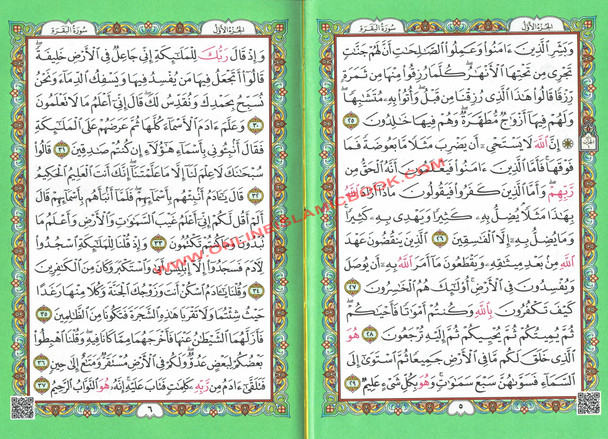 الجزء الأول
سورة البقرة
وَبَشِّرِ ٱلَّذِينَ ءَامَنُوا۟ وَعَمِلُوا۟ ٱلصَّـٰلِحَـٰتِ أَنَّ لَهُمْ جَنَّـٰتٍ
تَجْرِى مِن تَحْتِهَا ٱلْأَنْهَـٰرُ ۖ كُلَّمَا رُزِقُوا۟ مِنْهَا مِن ثَمَرَةٍ
رِّزْقًا ۙ قَالُوا۟ هَـٰذَا ٱلَّذِى رُزِقْنَا مِن قَبْلُ ۖ وَأُتُوا۟ بِهِۦ مُتَشَـٰبِهًا ۖ
وَلَهُمْ فِيهَآ أَزْوَٰجٌ مُّطَهَّرَةٌ ۖ وَهُمْ فِيهَا خَـٰلِدُونَ ٢٥
۞ إِنَّ ٱللَّهَ لَا يَسْتَحْىِۦٓ أَن يَضْرِبَ مَثَلًا مَّا بَعُوضَةً فَمَا
فَوْقَهَا ۚ فَأَمَّا ٱلَّذِينَ ءَامَنُوا۟ فَيَعْلَمُونَ أَنَّهُ ٱلْحَقُّ مِن
رَّبِّهِمْ ۖ وَأَمَّا ٱلَّذِينَ كَفَرُوا۟ فَيَقُولُونَ مَاذَآ أَرَادَ ٱللَّهُ
بِهَـٰذَا مَثَلًا ۘ يُضِلُّ بِهِۦ كَثِيرًا وَيَهْدِى بِهِۦ كَثِيرًا ۚ
وَمَا يُضِلُّ بِهِۦٓ إِلَّا ٱلْفَـٰسِقِينَ ٢٦ ٱلَّذِينَ يَنقُضُونَ عَهْدَ
ٱللَّهِ مِنۢ بَعْدِ مِيثَـٰقِهِۦ وَيَقْطَعُونَ مَآ أَمَرَ ٱللَّهُ بِهِۦٓ أَن يُوصَلَ
وَيُفْسِدُونَ فِى ٱلْأَرْضِ ۚ أُو۟لَـٰٓئِكَ هُمُ ٱلْخَـٰسِرُونَ ٢٧
كَيْفَ تَكْفُرُونَ بِٱللَّهِ وَكُنتُمْ أَمْوَٰتًا فَأَحْيَـٰكُمْ ۖ
ثُمَّ يُمِيتُكُمْ ثُمَّ يُحْيِيكُمْ ثُمَّ إِلَيْهِ تُرْجَعُونَ ٢٨ هُوَ
ٱلَّذِى خَلَقَ لَكُم مَّا فِى ٱلْأَرْضِ جَمِيعًا ثُمَّ ٱسْتَوَىٰٓ إِلَى
ٱلسَّمَآءِ فَسَوَّىٰهُنَّ سَبْعَ سَمَـٰوَٰتٍ ۚ وَهُوَ بِكُلِّ شَىْءٍ عَلِيمٌ ٢٩
٥
الجزء الأول
سورة البقرة
وَإِذْ قَالَ رَبُّكَ لِلْمَلَـٰٓئِكَةِ إِنِّى جَاعِلٌ فِى ٱلْأَرْضِ خَلِيفَةً ۖ
قَالُوٓا۟ أَتَجْعَلُ فِيهَا مَن يُفْسِدُ فِيهَا وَيَسْفِكُ ٱلدِّمَآءَ وَنَحْنُ
نُسَبِّحُ بِحَمْدِكَ وَنُقَدِّسُ لَكَ ۖ قَالَ إِنِّىٓ أَعْلَمُ مَا لَا تَعْلَمُونَ
٣٠ وَعَلَّمَ ءَادَمَ ٱلْأَسْمَآءَ كُلَّهَا ثُمَّ عَرَضَهُمْ عَلَى ٱلْمَلَـٰٓئِكَةِ
فَقَالَ أَنۢبِـُٔونِى بِأَسْمَآءِ هَـٰٓؤُلَآءِ إِن كُنتُمْ صَـٰدِقِينَ ٣١ قَالُوا۟
سُبْحَـٰنَكَ لَا عِلْمَ لَنَآ إِلَّا مَا عَلَّمْتَنَآ ۖ إِنَّكَ أَنتَ ٱلْعَلِيمُ ٱلْحَكِيمُ
٣٢ قَالَ يَـٰٓـَٔادَمُ أَنۢبِئْهُم بِأَسْمَآئِهِمْ ۖ فَلَمَّآ أَنۢبَأَهُم بِأَسْمَآئِهِمْ قَالَ
أَلَمْ أَقُل لَّكُمْ إِنِّىٓ أَعْلَمُ غَيْبَ ٱلسَّمَـٰوَٰتِ وَٱلْأَرْضِ وَأَعْلَمُ مَا
تُبْدُونَ وَمَا كُنتُمْ تَكْتُمُونَ ٣٣ وَإِذْ قُلْنَا لِلْمَلَـٰٓئِكَةِ ٱسْجُدُوا۟
لِـَٔادَمَ فَسَجَدُوٓا۟ إِلَّآ إِبْلِيسَ أَبَىٰ وَٱسْتَكْبَرَ وَكَانَ مِنَ ٱلْكَـٰفِرِينَ
٣٤ وَقُلْنَا يَـٰٓـَٔادَمُ ٱسْكُنْ أَنتَ وَزَوْجُكَ ٱلْجَنَّةَ وَكُلَا مِنْهَا رَغَدًا
حَيْثُ شِئْتُمَا وَلَا تَقْرَبَا هَـٰذِهِ ٱلشَّجَرَةَ فَتَكُونَا مِنَ ٱلظَّـٰلِمِينَ ٣٥
فَأَزَلَّهُمَا ٱلشَّيْطَـٰنُ عَنْهَا فَأَخْرَجَهُمَا مِمَّا كَانَا فِيهِ ۖ وَقُلْنَا ٱهْبِطُوا۟
بَعْضُكُمْ لِبَعْضٍ عَدُوٌّ ۖ وَلَكُمْ فِى ٱلْأَرْضِ مُسْتَقَرٌّ وَمَتَـٰعٌ إِلَىٰ حِينٍ ٣٦
فَتَلَقَّىٰٓ ءَادَمُ مِن رَّبِّهِۦ كَلِمَـٰتٍ فَتَابَ عَلَيْهِ ۚ إِنَّهُۥ هُوَ ٱلتَّوَّابُ ٱلرَّحِيمُ ٣٧
٦
WWW.ONLINEISLAMICBOOK.COM